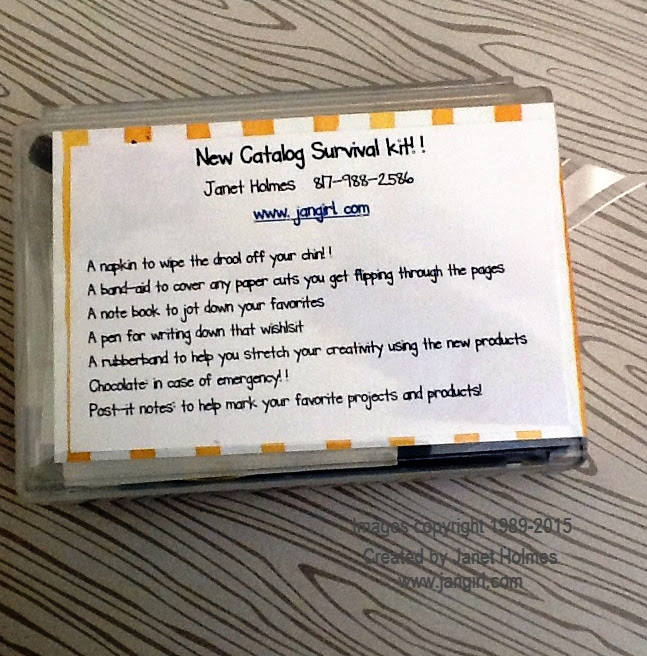 New Catalog Survival kit!!
Janet Holmes 817-988-2586
www. jangirl. com
A napkin to wipe the drool off your chin!!
A band-aid to cover any paper cuts you get flipping through the pages
A note book to jot down your favorites
A pen for writing down that wishlsit
A rubberband to help you stretch your creativity using the new products
Chocolate: in case of emergency!!
Post-it notes: to help mark your favorite projects and products!
Images copyright 1989-2015
Created by Janet Holmes
www.jangirl.com